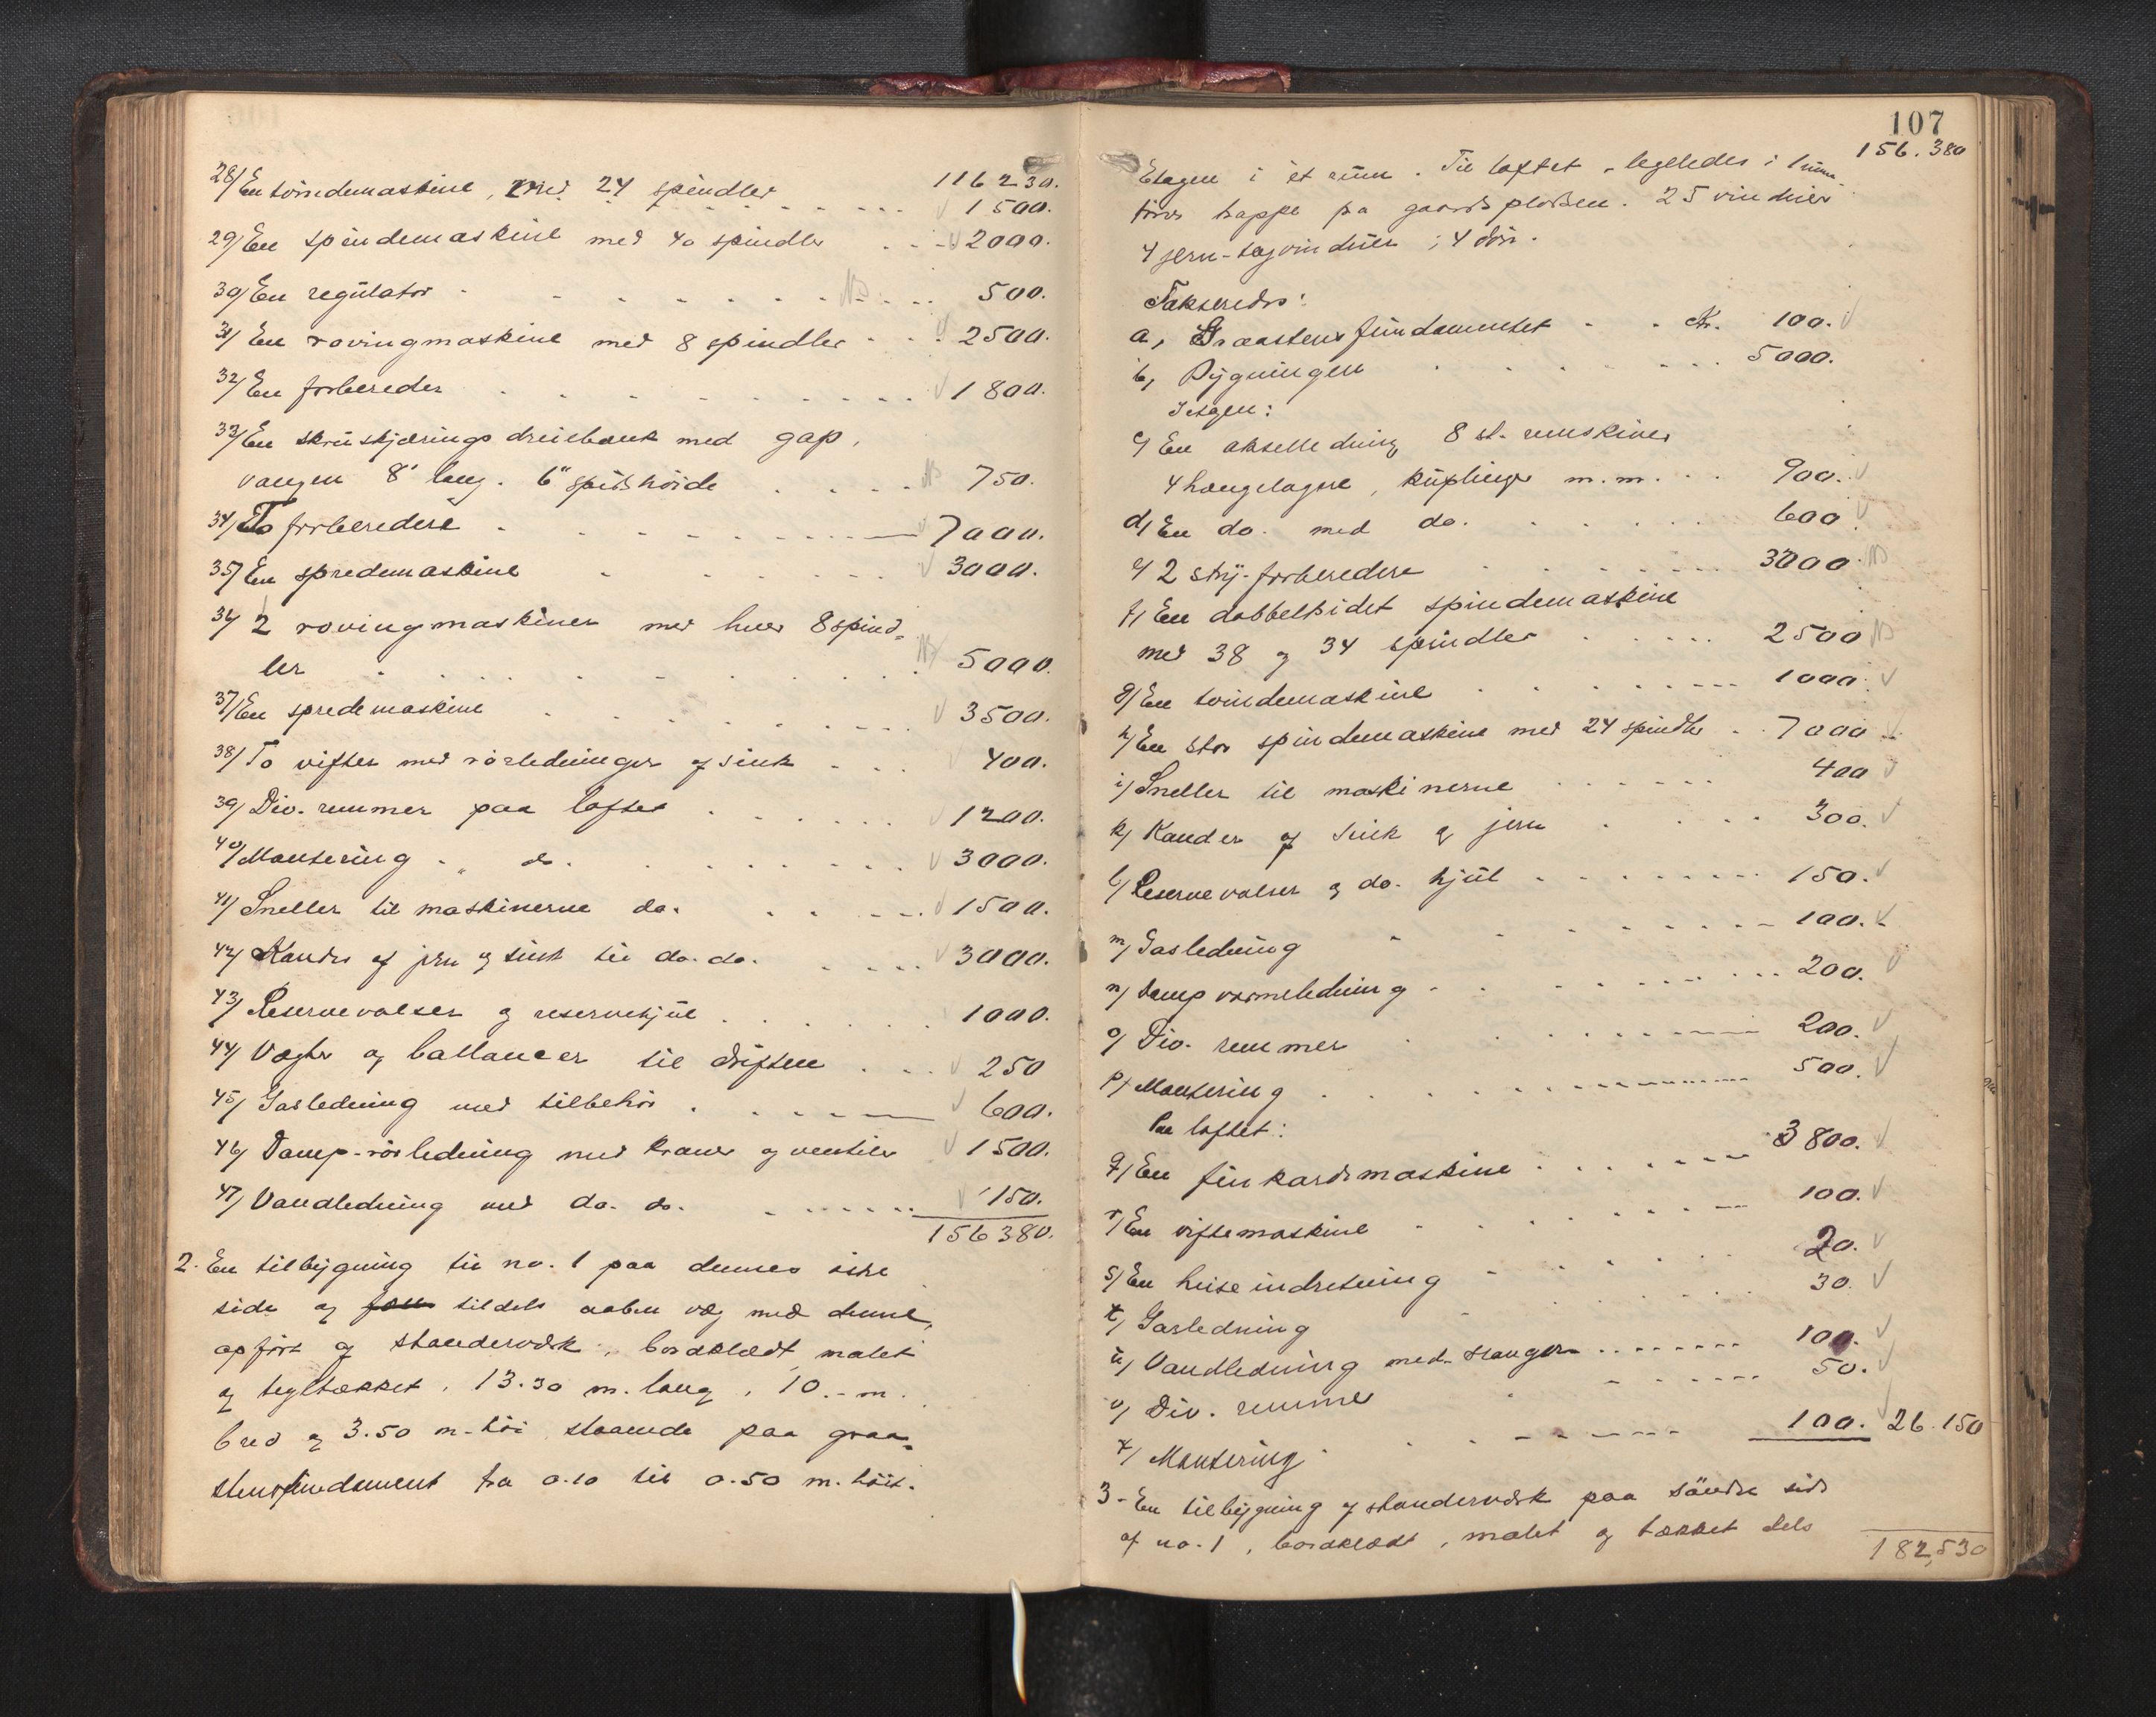 116230.
28/ En tvindemaskine, med 24 spindler 1500.
29/ En spindemaskine med 40 spindler 2000.
30/ En regulator 500.
31/ En rovingmaskine med 8 spindler 2500.
32/ En forbereder 1800.
33/ En skrueskjærings dreiebænk med gap,
vangen 8' lang. 6" spidshøide 750.
34/ To forberedere 7000.
35/ En spredemaskine 3000.
36/ 2 rovingmaskiner med hver 8 spind-
ler 5000.
37/ En spredemaskine 3500.
38/ To vifter med rørledninger af sink 400.
39/ Div. remmer paa loftet 1200.
40/ Montering " do. 3000.
41/ Sneller til maskinerne do. 1500.
42/ Kander af jern og sink til do. do. 3000.
43/ Reservevalser og reservehjul 1000.
44/ Vægter og ballancer til driften 250
45/ Gasledning med tilbehør 600.
46/ Damp-rørledning med kraner og ventiler 1500.
47/ Vandledning med do. do. 150.
156380.
2. En tilbygning til no. 1 paa dennes
side og tildels aaben væg med denne,
opført af standerværk, bordklædt malet
og tegltækket, 13.30 m. lang, 10.- m.
bred og 3.50 m. høi, staaende paa graa-
stensfundament fra 0.10 til 0.50 m. høit.
107
156.380
Etagen i et rum. Til loftet, ligeledes i 1 rum
fører trappe fra gaardspladsen. 25 vinduer
4 jern-tagvinduer, 4 dør.
Takseredes:
a, Graastensfundamentet Kr. 100.
b, Bygningen 5000.
I etagen:
c/ En akselledning 8 st. remskiver
4 hængelagere, kuplinger m.m. 900.
d/ En do. med do. 600.
e/ 2 stry-forberedere 3000.
f/ En dobbeltsidet spindemaskine
med 38 og 34 spindler 2500
g/ En tvindemaskine 1000.
h/ En stor spindemaskine med 24 spindler 7000
i/ Sneller til maskinerne 400
k/ Kander af sink og jern 300.
l/ Reservevalser og do. hjul 150.
m/ Gasledning 100.
n/ Damp varmeledning 200.
o/ Div. remmer 200.
p/ Montering 500.
Paa loftet:
q/ En finkardemaskine 3800.
r/ En viftemaskine 100.
s/ En heiseindretning 20.
t/ Gasledning 30.
u/ Vandledning med slanger 100.
v/ Div. remmer 50.
x/ Montering 100. 26.150
3- En tilbygning af standerværk paa søndre side
af no. 1, bordklædt, malet og tækket dels
182,530